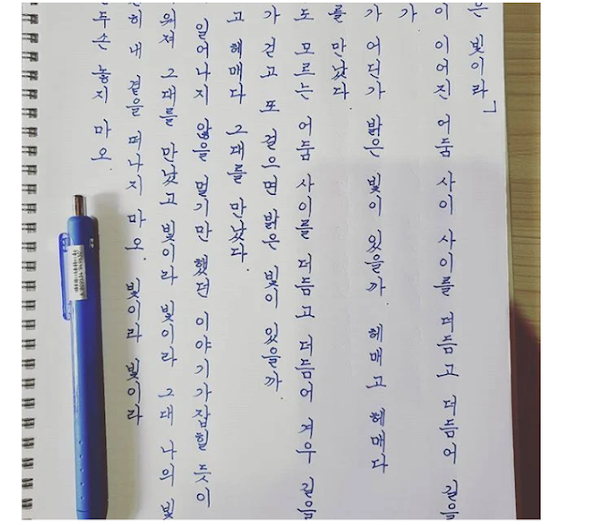 은 빛이라」
이 이어진 어둠 사이 사이를 더듬고 더듬어 걸음
가
가 어딘가 밝은 빛이 있을까 헤매고 헤매다
를 만났다.
도 모르는 어둠 사이를 더듬고 더듬어 겨우 걸음
가 걷고 또 걸으면 밝은 빛이 있을까.
고 헤매다 그대를 만났다.
일어나지 않을 멀기만 했던 이야기가 잡힐 듯이
워져 그대를 만났고 빛이라 빛이라 그대 나의 빛
히 내 곁을 떠나지 마오. 빛이라 빛이라
두손 놓지 마오.